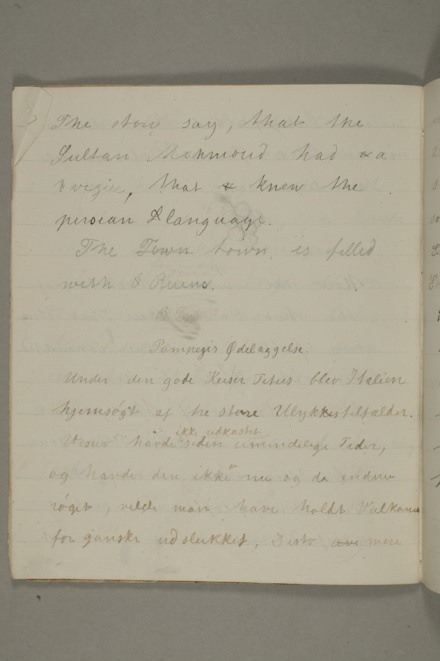 The stori say, that the
Sultan Mehmoud had a
vegir, that knew the
persean language.
The Town town, is filled
with Ruens.
Pompegis Ødelaggelse.
Under den gode Keiser Titus blev Italien
hjemsøgt af tre store Ulykkestilfælder.
Vesuv havde siden umindelige Tider,
ikke udkastet
og havde den ikke nu og da endnu
røget, vilde man have holdt Vulkanen
for ganske udslukket, Desto mere